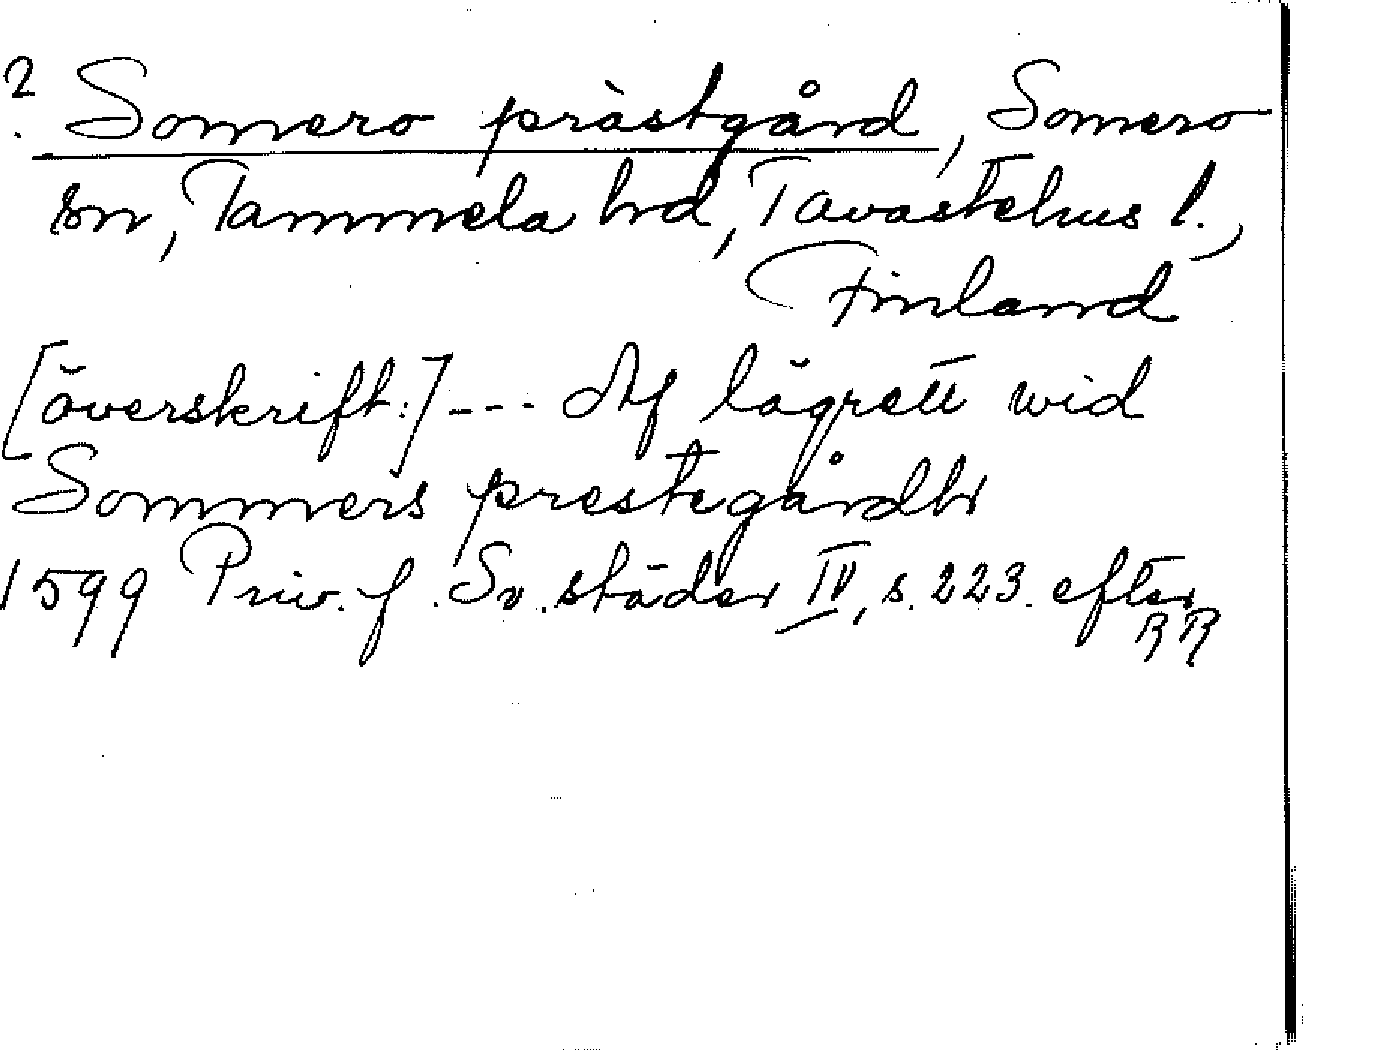 ? Somero prästgård, Somero
sn, Tammela hrd, Tavastehus l.,
Finland
[överskrift:]--- Af lägrett wid
Sommers prestegårdh
1599 Priv. f. Sv. städer IV, s. 223. efter
RR